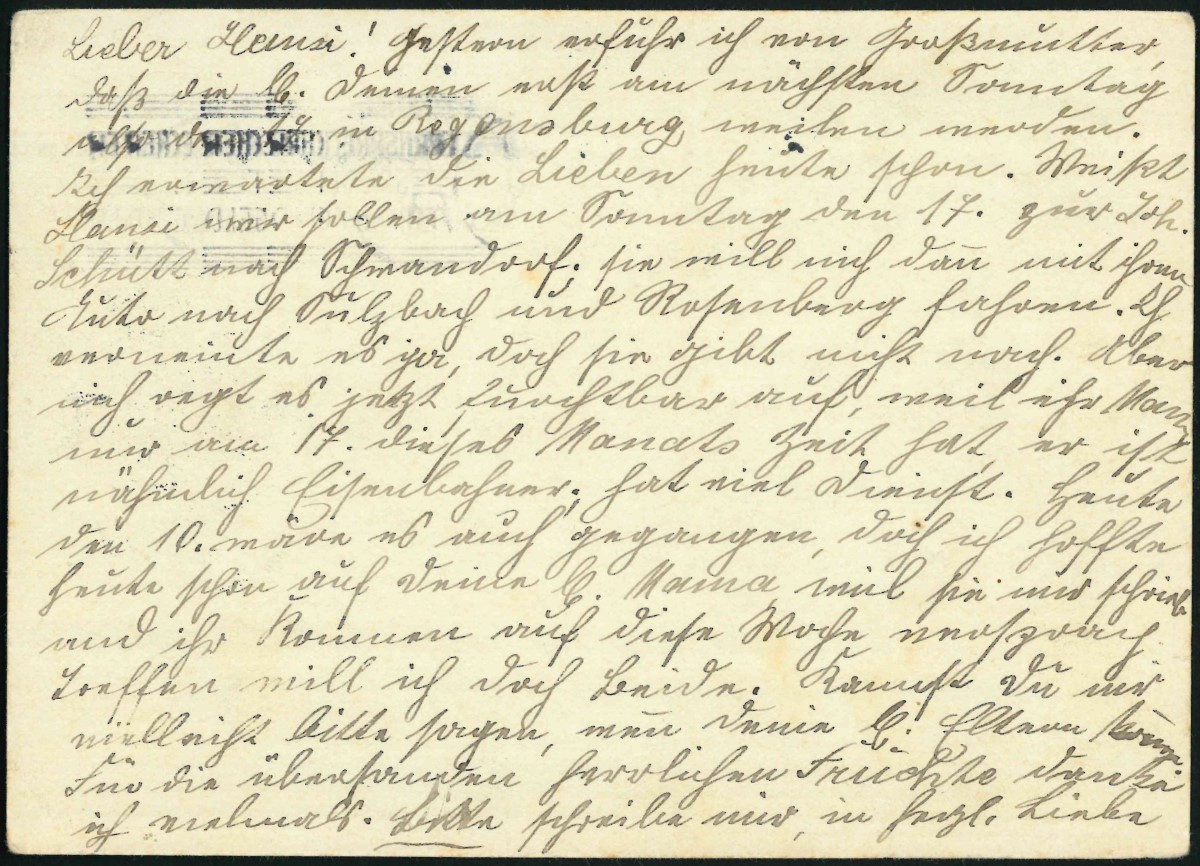 Lieber Hansi! Gestern erfuhr ich von Großmutter,
daß die lb. Deinen erst am nächsten Sonntag
in Regensburg weilen werden.
Ich erwartete die Lieben heute schon. Weißt
Hansi wir sollen am Sonntag den 17. zur Joh.
Schütt nach Schwandorf, sie will mich dann mit ihrem
Auto nach Sulzbach und Rosenberg fahren. Ich
verneinte es ja, doch sie gibt nicht nach. Aber
mich regt es jetzt furchtbar auf, weil ihr Mann
nur am 17. dieses Monats Zeit hat, er ist
nähmlich Eisenbahner, hat viel Dienst. Heute
den 10. wäre es auch gegangen, doch ich hoffte
heute schon auf Deine lb. Mama, weil sie mir schrieb
und ihr Kommen auf diese Woche versprach.
Treffen will ich doch Beide. Kannst Du mir
vielleicht bitte sagen, wenn Deine lb. Eltern kommen
Für die übersanden herrlichen Früchte danke
ich vielmals. Bitte schreibe mir, in herzl. Liebe